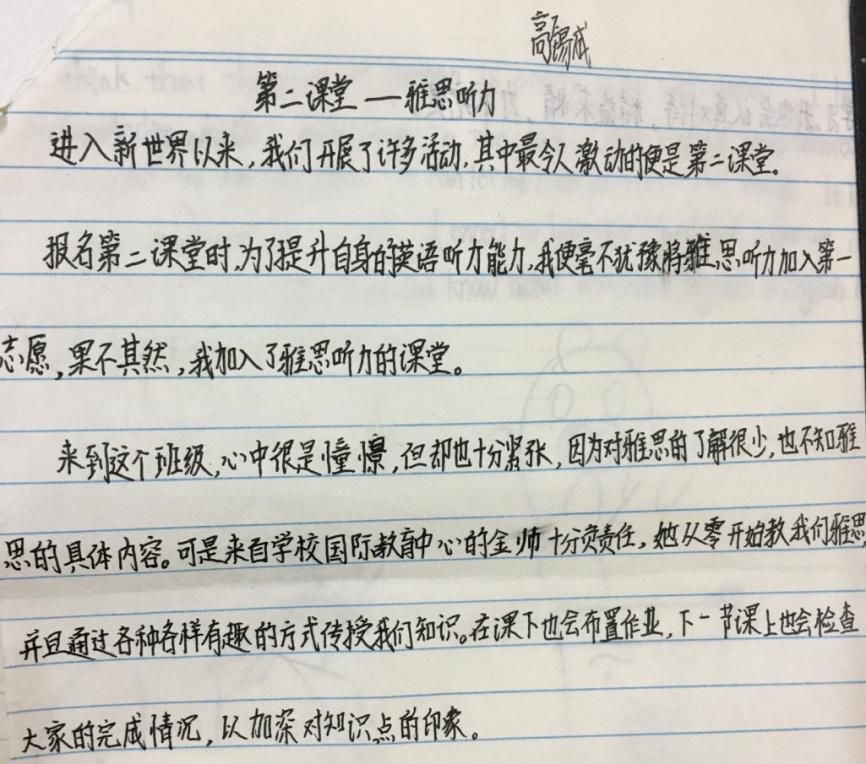 高锡成
第二课堂——雅思听力
进入新世界以来，我们开展了许多活动，其中最令人激动的便是第二课堂。
报名第二课堂时，为了提升自身的英语听力能力，我便毫不犹豫将雅思听力加入第一
志愿，果不其然，我加入了雅思听力的课堂。
来到这个班级，心中很是憧憬，但却也十分紧张，因为对雅思的了解很少，也不知雅
思的具体内容。可是来自学校国际教育中心的金师十分负责任，她从零开始教我们雅思
并且通过各种各样有趣的方式传授我们知识。在课下也会布置作业，下一节课上也会检查
大家的完成情况，以加深对知识点的印象。